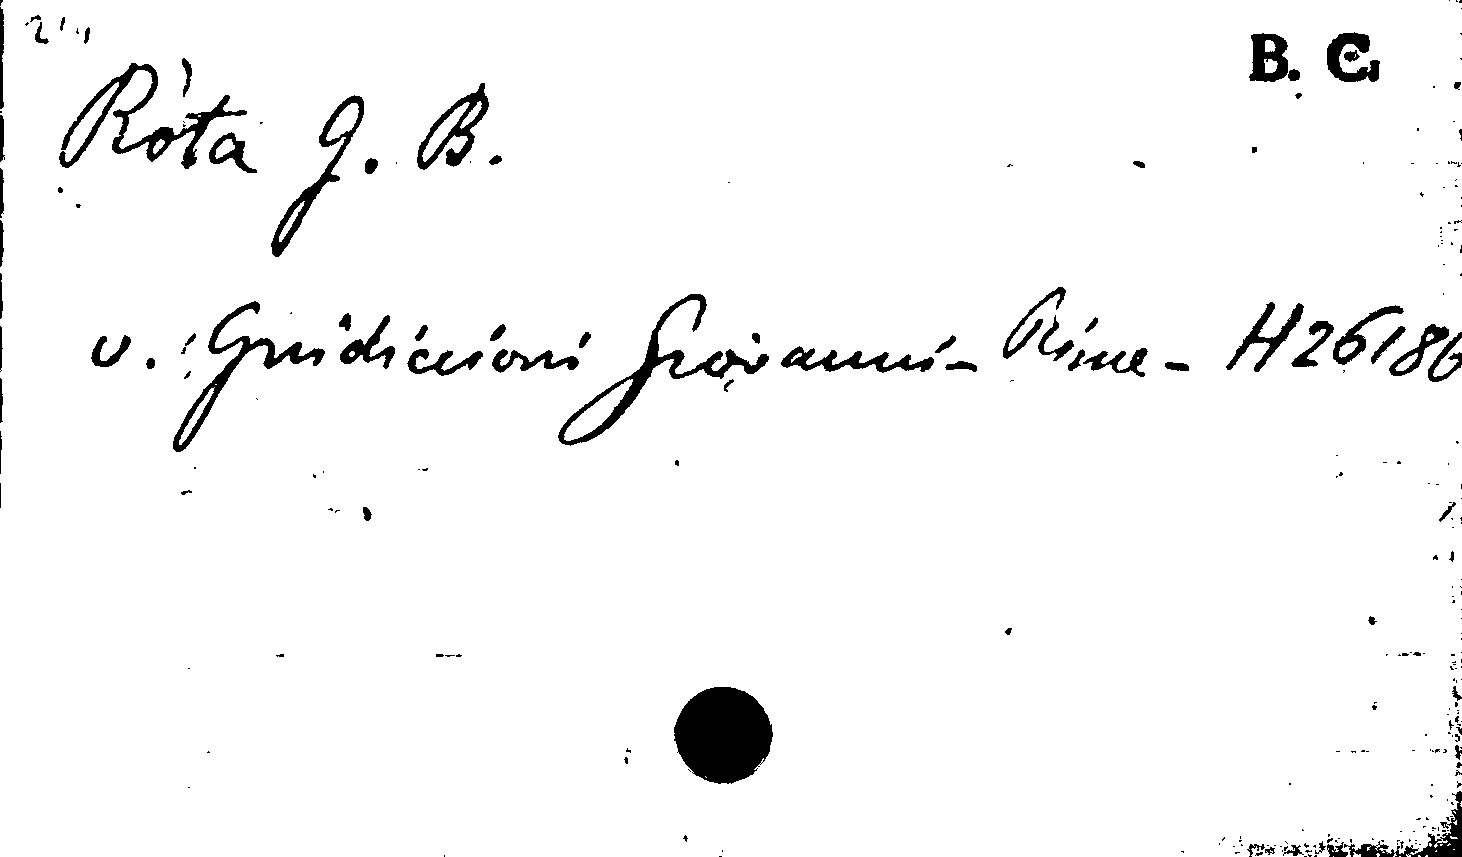 B. C.
Rota G. B.
v. Guidiccioni Giovanni - Rime - H 26186